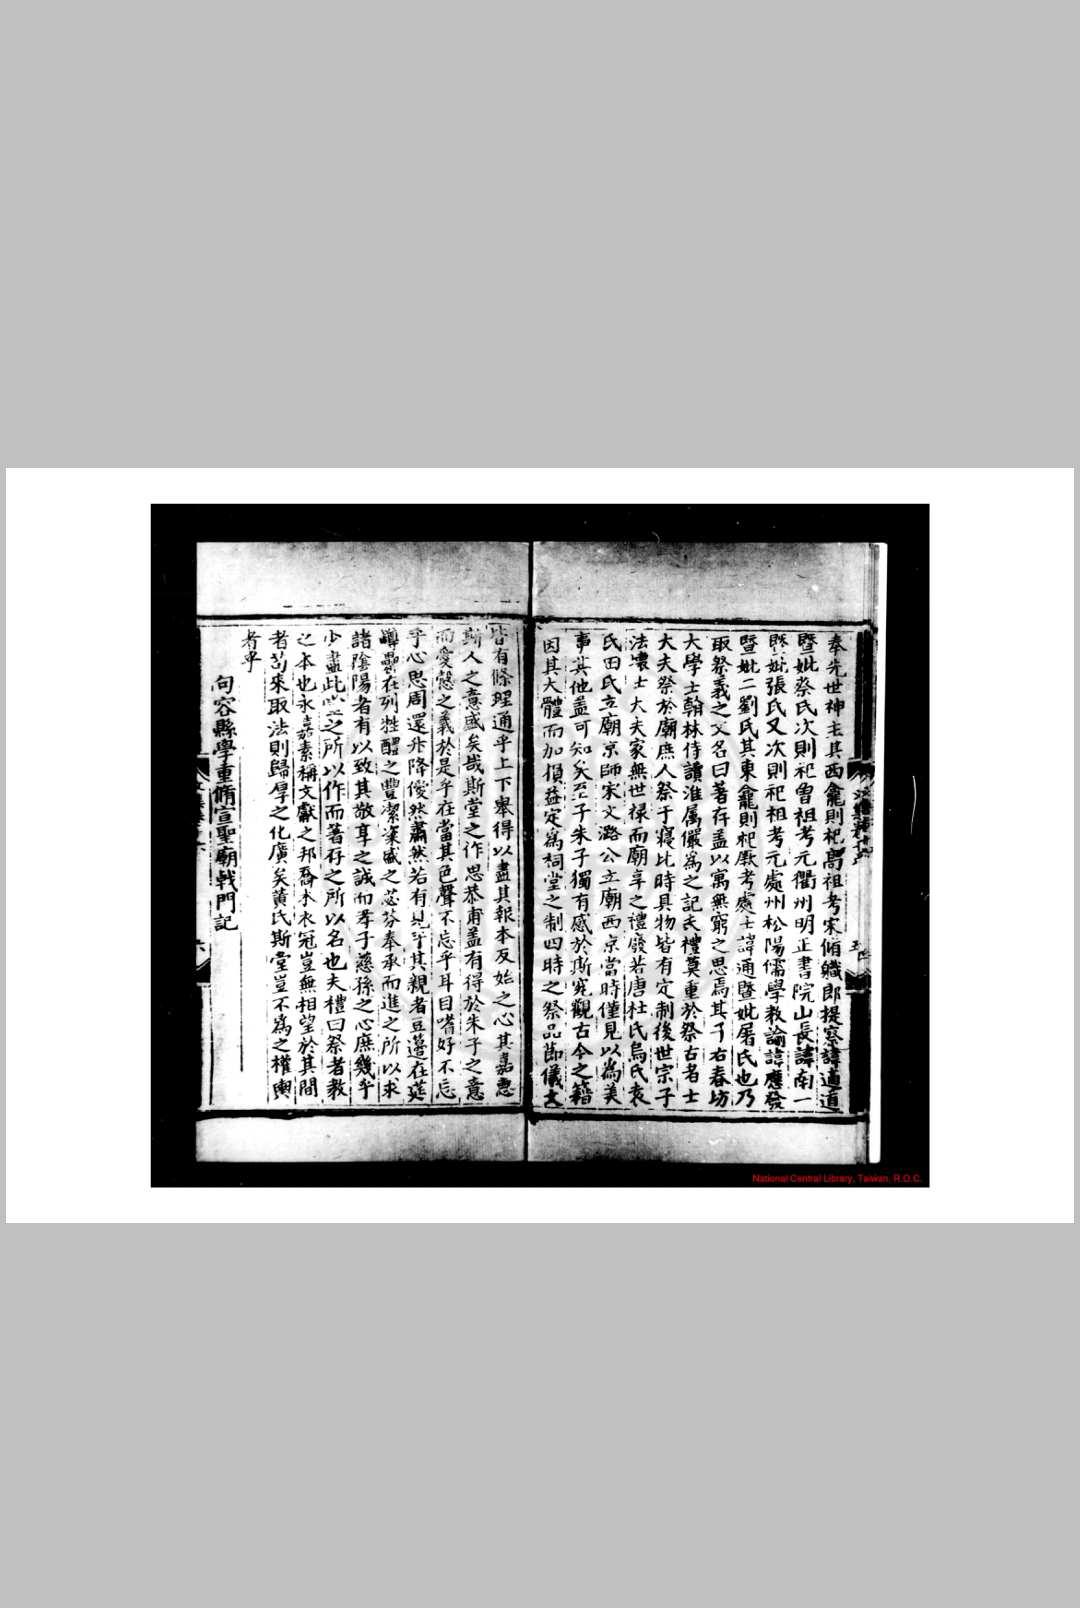 奉先世神主其西龕則祀高祖考宋脩職郎提察諱適道
暨妣蔡氏次則祀曾祖考元衢州明正書院山長諱南一
暨妣張氏又次則祀祖考元處州松陽儒學教諭諱應發
暨妣二劉氏其東龕則祀厥考處士諱通暨妣屠氏也乃
取祭義之文名曰著存盖以寓無窮之思焉其子右春坊
大學士翰林侍讀淮属儼為之記夫禮莫重於祭古者士
大夫祭於廟庶人祭于寢比時具物皆有定制後世宗子
法壞士大夫家無世禄而廟享之禮廢若唐杜氏烏氏袁
氏田氏立廟京師宋文潞公立廟西京當時僅見以為美
事其他盖可知矣至子朱子獨有感於斯究觀古今之籍
因其大體而加損益定為祠堂之制四時之祭品節儀文
皆有條理通乎上下舉得以盡其報本反始之心其嘉惠
斯人之意盛矣哉斯堂之作思恭甫盖有得於朱子之意
而愛慤之義於是乎在當其色聲不忘乎耳目嗜好不忘
乎心思周還升降僾然肅然若有見乎其親者豆籩在莚
罇罍在列牲醴之豐潔粢盛之苾芬奉承而進之所以求
諸陰陽者有以致其敬享之誠而孝子慈孫之心庶幾乎
少盡此堂之所以作而著存之所以名也夫禮曰祭者教
之本也永嘉素稱文獻之邦喬木衣冠豈無相望於其間
者苟來取法則歸厚之化廣矣黄氏斯堂豈不為之權輿
者乎
句容縣學重脩宣聖廟戟門記
六
National Central Library, Taiwan, R.O.C.